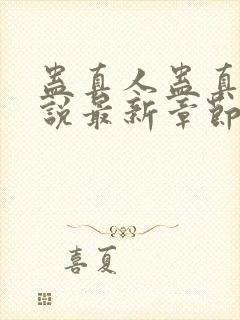 蛊真人蛊真
說最新章節
喜夏